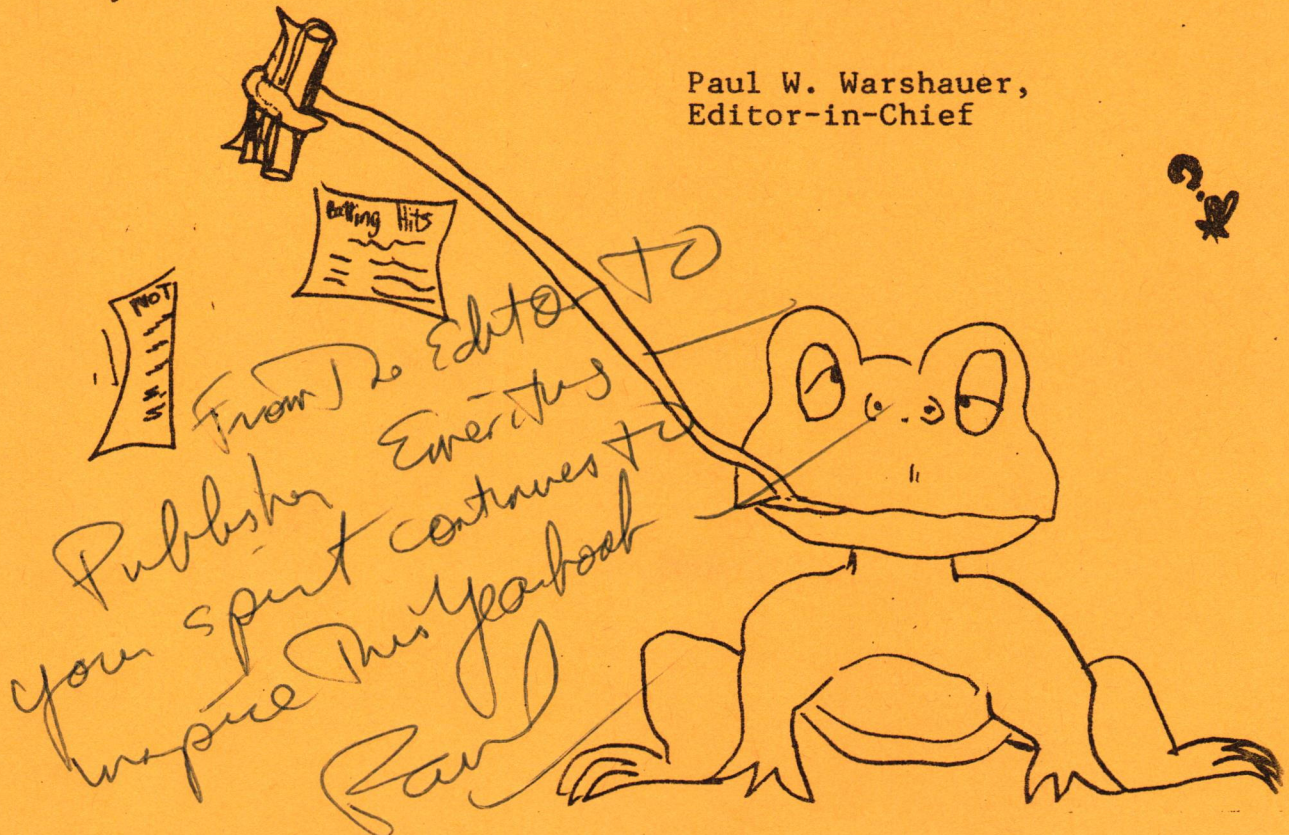 Paul W. Warshauer,
Editor-in-Chief
Batting Hits
NOT
From The Editor to
Publisher Emeritus
your spirit continues to
inspire This Yearbook
Paul